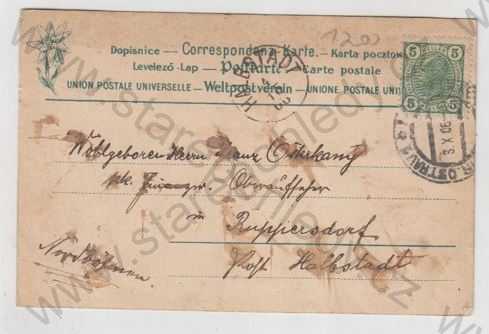 1200
Dopisnice — Correspondenz-Karte. — Karta pocztow
Levelező-Lap — Postkarte — Carte postale
UNION POSTALE UNIVERSELLE — Weltpostverein — UNIONE POSTALE UNI
5 5
5 5
HALBSTADT
OSTRAU
3 X 06
Wohlgeboren Herrn Franz
k.k. Finanzw. Oberaufseher
in
Ruppersdorf
Post Halbstadt
Nordböhmen
www.starepohledy.cz